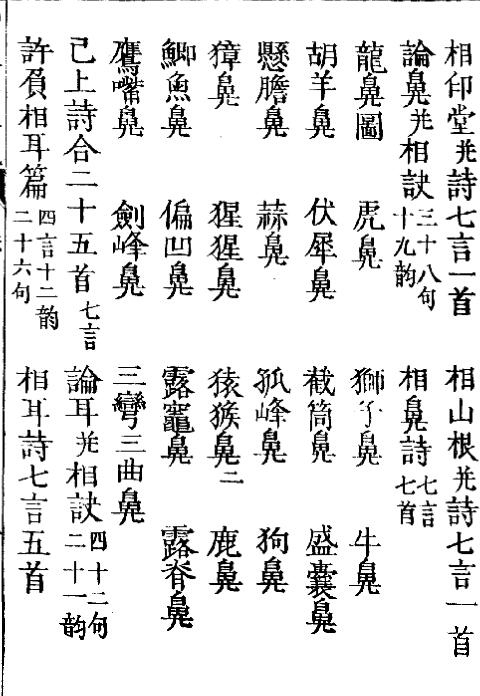 相印堂并詩七言一首　相山根并詩七言一首
論鼻并相訣三十八句十九韵　相鼻詩七言七首
龍鼻圖　虎鼻　獅子鼻　牛鼻
胡羊鼻　伏犀鼻　截筒鼻　盛囊鼻
懸膽鼻　蒜鼻　孤峰鼻　狗鼻
獐鼻　猩猩鼻　猿猴鼻二　鹿鼻
鯽魚鼻　偏凹鼻　露竈鼻　露脊鼻
鷹嘴鼻　劍峰鼻　三彎三曲鼻
己上詩合二十五首七言　論耳并相訣四十二句二十一韵
許負相耳篇四言十二韵二十六句　相耳詩七言五首